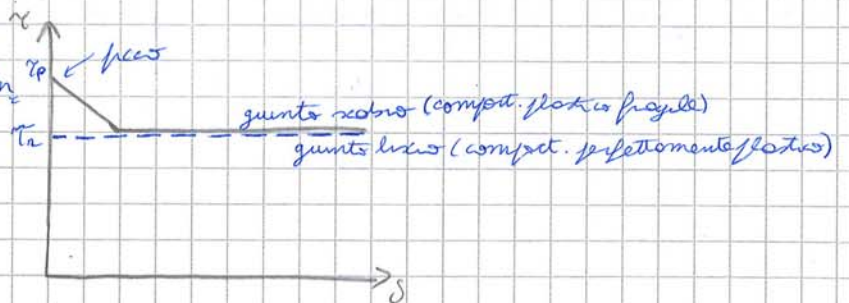 τ
τp picco
giunto scabro (comport. plastico fragile)
τr
giunto liscio (comport. perfettamente plastico)
δ